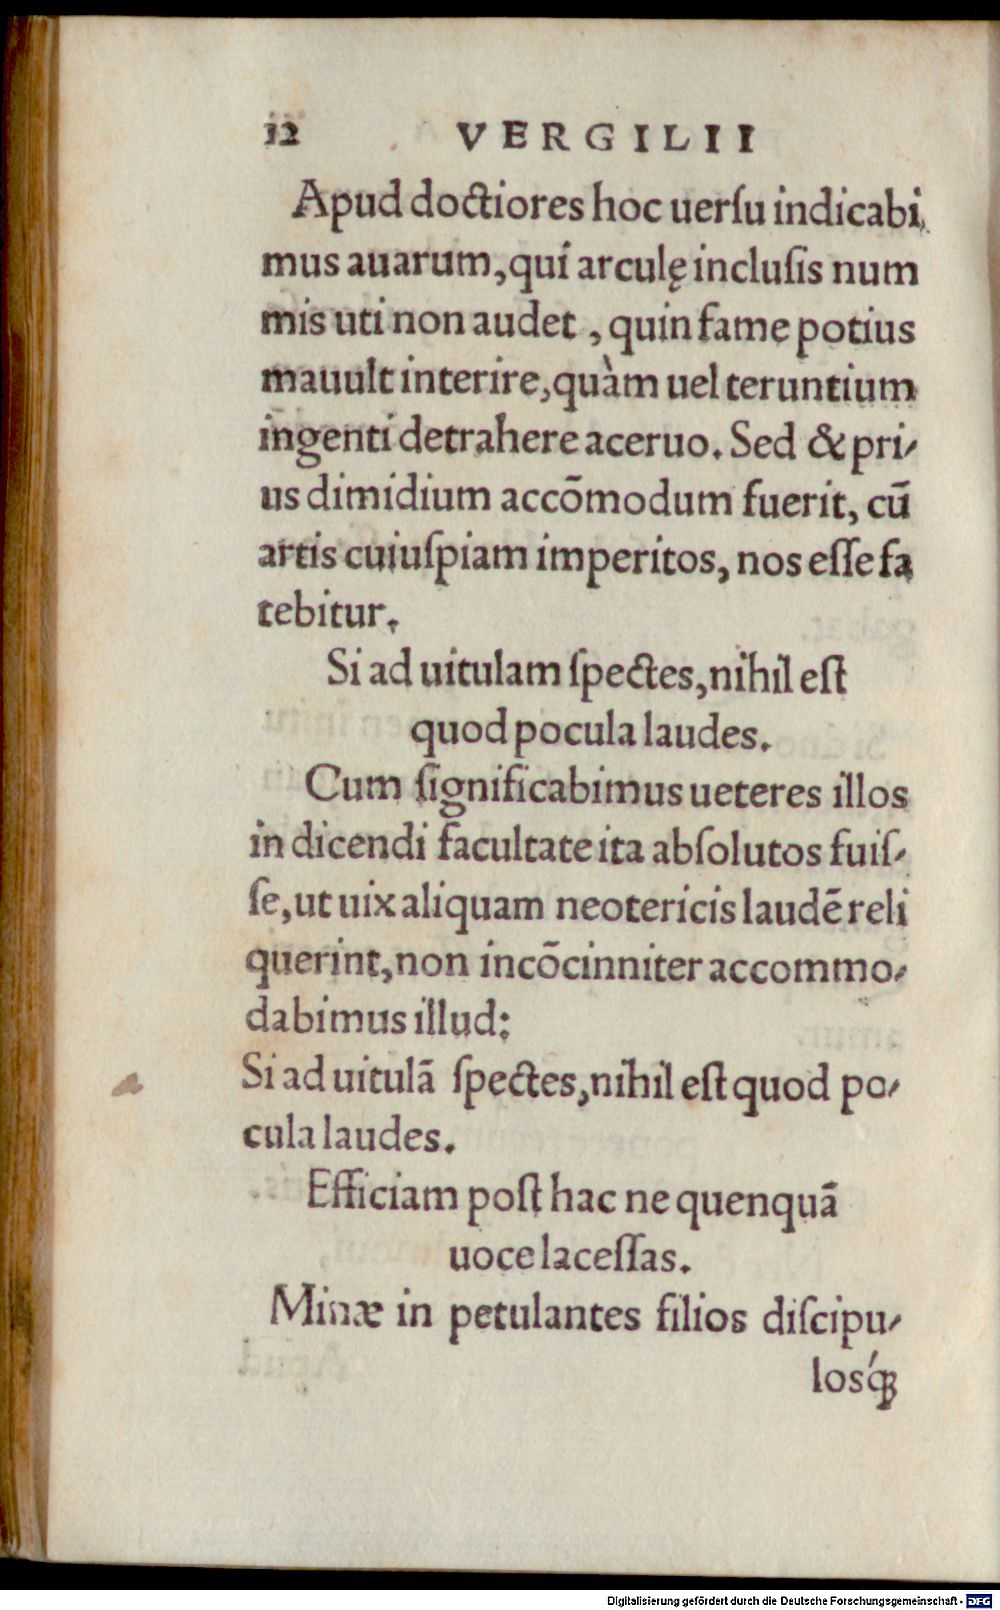 12 VERGILII
Apud doctiores hoc uerſu indicabi,
mus auarum, qui arculę incluſis num
mis uti non audet, quin fame potius
mauult interire, quàm uel teruntium
ingenti detrahere aceruo. Sed & pri⸗
us dimidium accōmodum fuerit, cū
artis cuiuſpiam imperitos, nos eſſe fa
tebitur.
Si ad uitulam ſpectes, nihil eſt
quod pocula laudes.
Cum ſignificabimus ueteres illos
in dicendi facultate ita abſolutos fuiſ⸗
ſe, ut uix aliquam neotericis laudē reli
querint, non incōcinniter accommo⸗
dabimus illud:
Si ad uitulā ſpectes, nihil eſt quod po⸗
cula laudes.
Efficiam poſt hac ne quenquā
uoce laceſſas.
Minæ in petulantes filios diſcipu⸗
losq́ꝫ
Digitalisierung gefördert durch die Deutsche Forschungsgemeinschaft - DFG